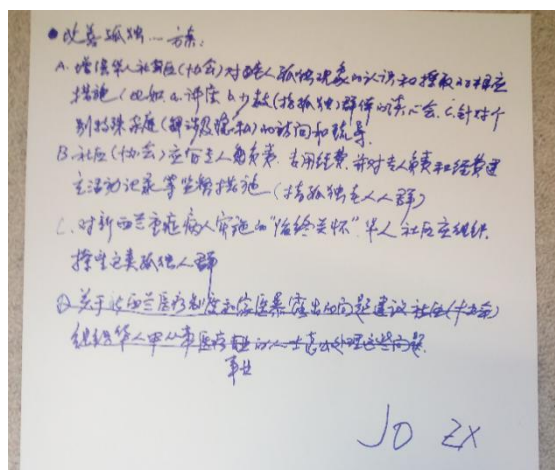 ● 改善孤独一方案:
A. 增强华人社区(协会)对老人孤独现象的认识和採取的相应
措施(比如 a. 讲座 b. 少数(指孤独)群体的谈心会. c. 针对个
别特殊家庭(群涉及隐私)的访问和疏导.
B. 社区(协会)应有专人负责, 专用经费, 并对专人负责和经费建
立活动记录等监督措施(指孤独老人人群)
C. 对新西兰重症病人实施的“临终关怀”华人社区应组织
探望这类孤独人群
D 关于新西兰医疗制度和家医暴露出的问题建议社区
组织华人中从事医疗事业的人士去处理这些问题.
JO ZX